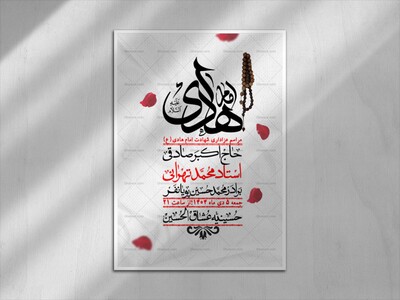 امام هادی
علیه السلام
مراسم عزاداری شهادت امام هادی (ع)
حاج اکبر صادقی
استاد محمد تهرانی
برادر محمد حسین پویانفر
جمعه ۵ دی ماه ۱۴۰۴ از ساعت ۲۱
حسینیه عشاق الحسین